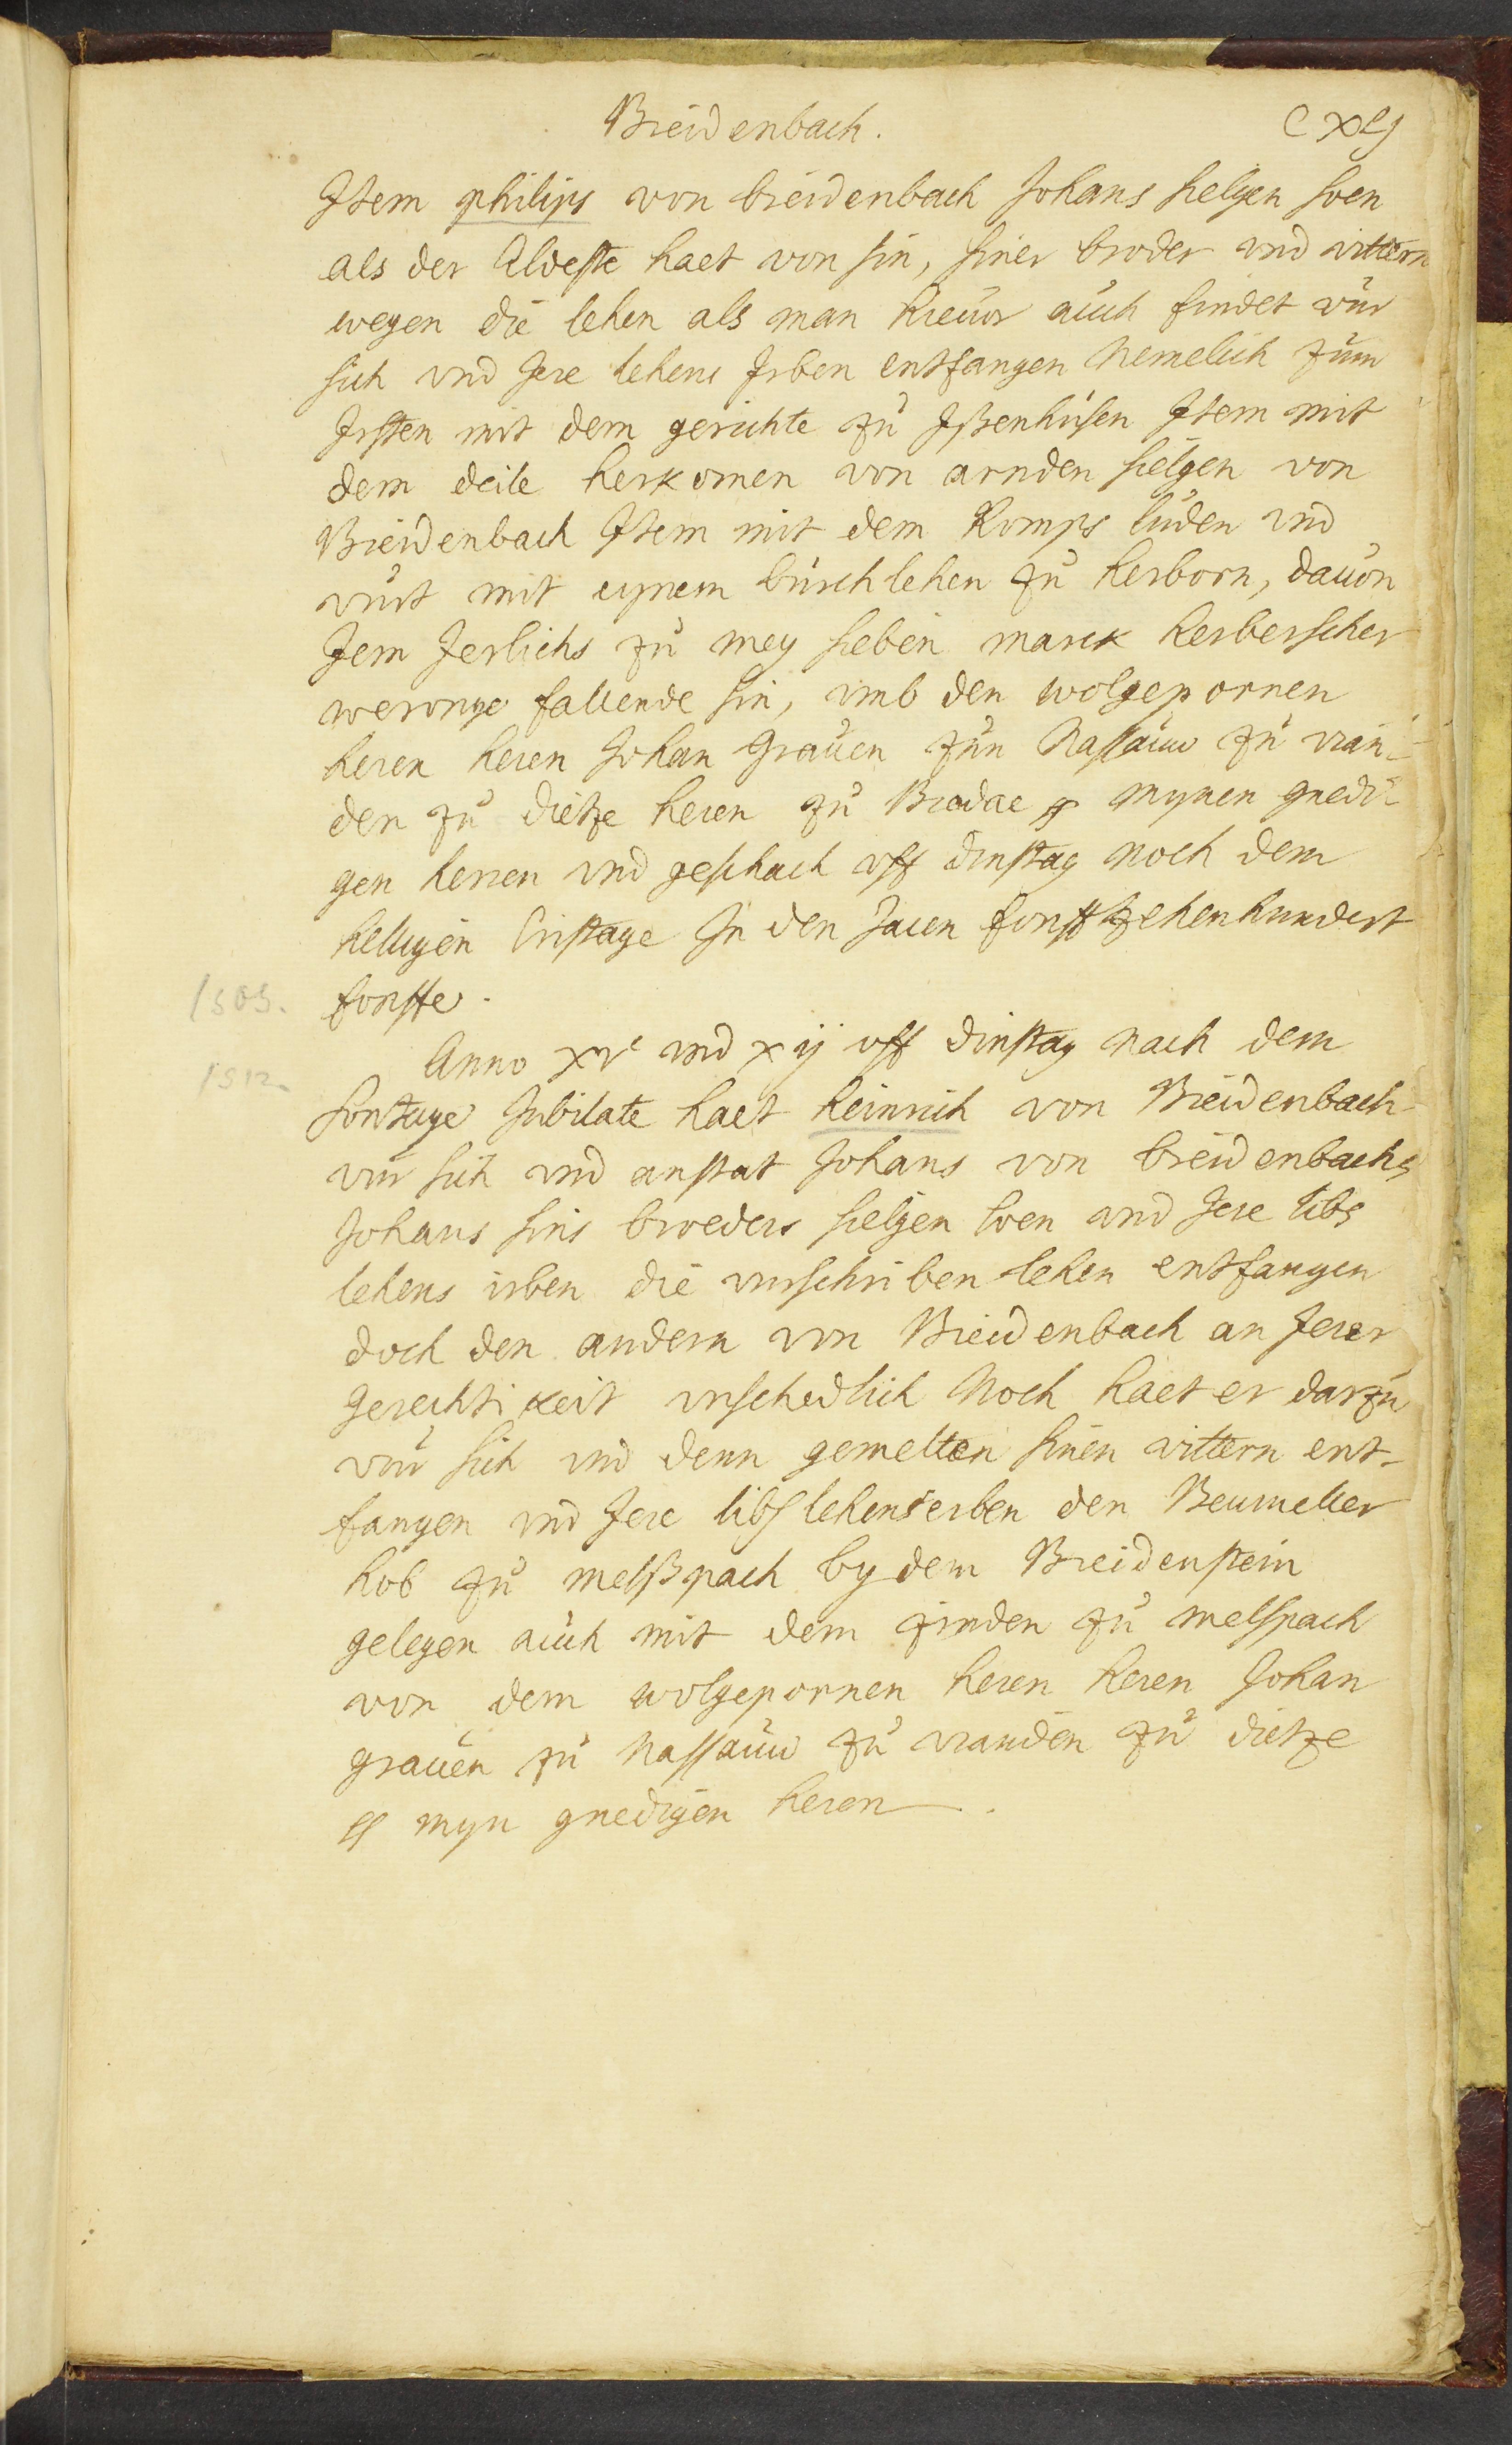 Breidenbach. Cxlj
Item philips von breidenbach Johans selgen soen
als der Aldeste haet von sin, siner broder vnd vittern
wegen die lehen als man hieuor auch findet vur
sich vnd Jere lehens Jrben entfangen Nemelich zum
Jrsten mit dem gerichte zu Jßenhusen Jtem mit
dem deile herkomen von arnden selgen von
Breidenbach Jtem mit dem Komps luden vnd
vurt mit eynem burchlehen zu herborn, dauon
Jem Jerlichs zu mey sieben marck herberscher
weronge fallende sin, vmb den wolgepornen
heren heren Johan Grauen zun Nassauw zu vian-
den zu dietze heren zu Bredae mynen gnedi-
gen herren vnd geschach vff dinstag noch dem
helligen Cristage In den Jaren fonfftzehenhundert
1505. fonffe.
Anno xvc vnd xij vff dinstag nach dem
1512.
sontage Jubilate haet heinrich von Breidenbach
vur sich vnd anstat Johans von breidenbachs
Johans sins broeders selgen soen vnd Jere libs
lehens irben die vurschriben lehen entfangen
doch den andern von Breidenbach an Jerer
gerechtikeit vnschedlich Noch haet er darzu
vur sich vnd denn gemelten sinen vittern ent-
fangen vnd Jere libs lehenserben den Beumeller
hob zu melßpach by dem Breidenstein
gelegen auch mit dem zinden zu melspach
von dem wolgepornen heren heren Johan
grauen zu Nassauw zu vianden zu dietze
myn gnedigen heren.